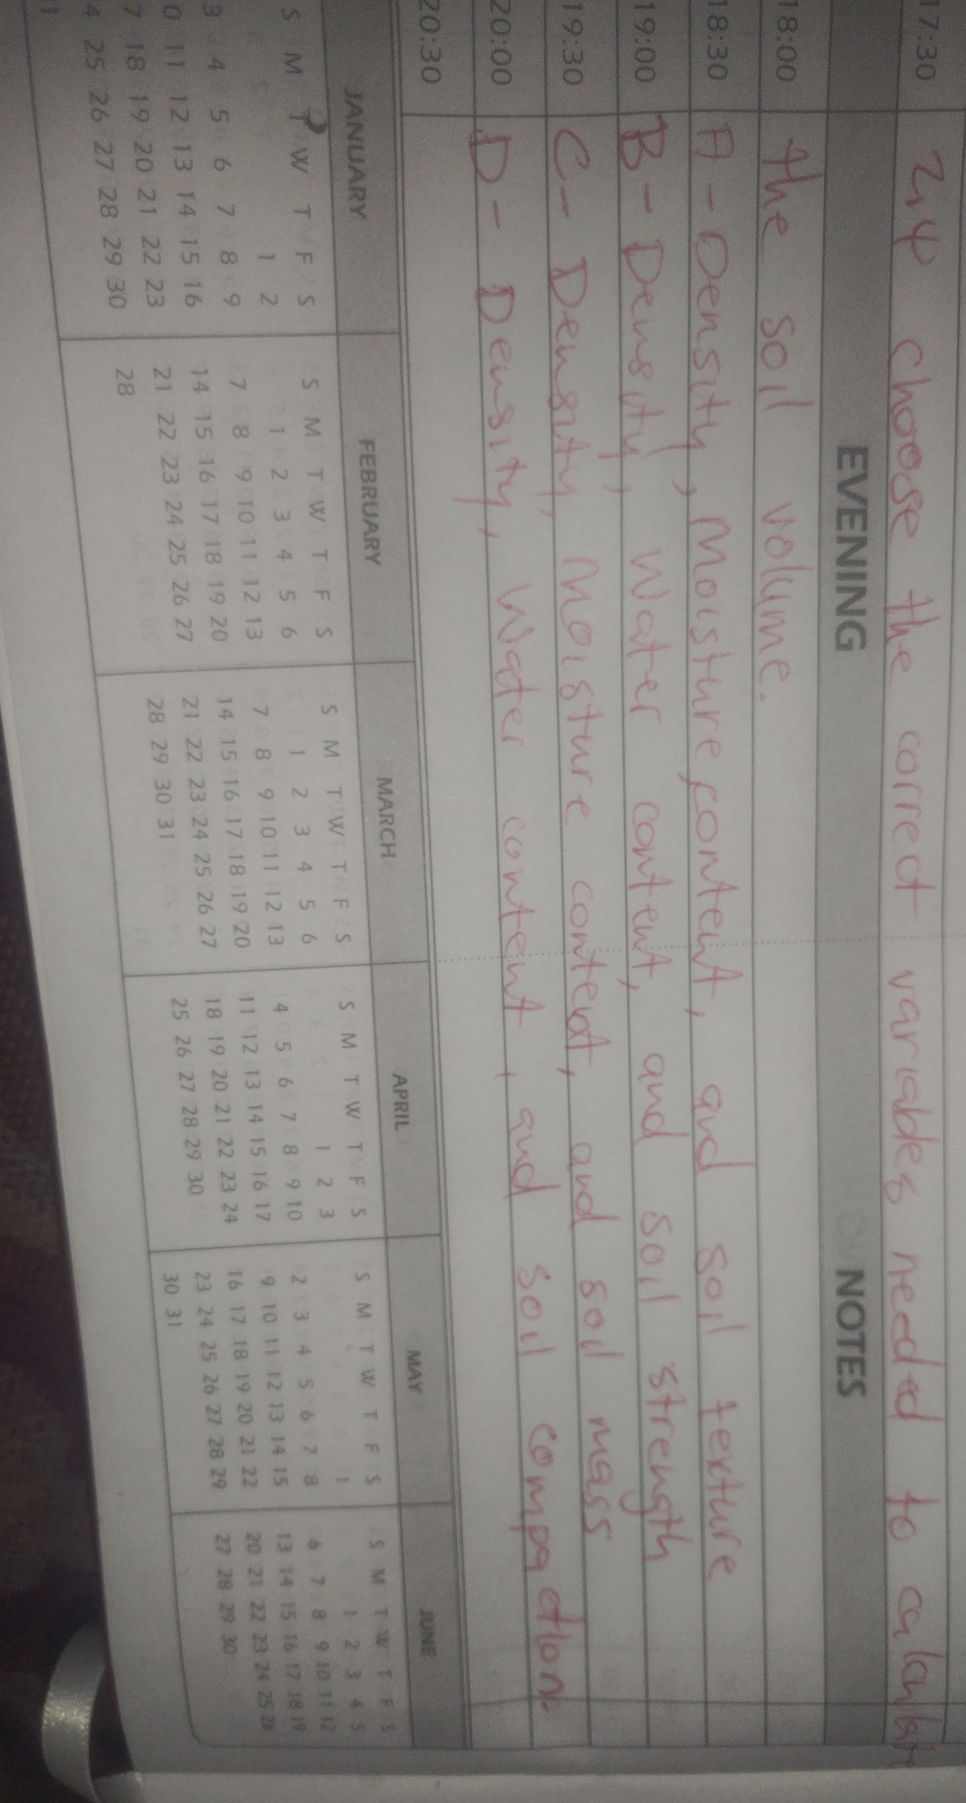 17:30 2.4 choose the correct variables needed to calculat
EVENING NOTES
18:00 the soil volume.
18:30 A - Density, Moisture content, and soil texture
19:00 B - Density, Water content, and soil strength
19:30 C - Density, Moisture content, and soil mass
20:00 D - Density, Water content, and soil compaction
20:30
JANUARY
S M T W T F S
1 2
3 4 5 6 7 8 9
0 11 12 13 14 15 16
7 18 19 20 21 22 23
4 25 26 27 28 29 30
FEBRUARY
S M T W T F S
1 2 3 4 5 6
7 8 9 10 11 12 13
14 15 16 17 18 19 20
21 22 23 24 25 26 27
28
MARCH
S M T W T F S
1 2 3 4 5 6
7 8 9 10 11 12 13
14 15 16 17 18 19 20
21 22 23 24 25 26 27
28 29 30 31
APRIL
S M T W T F S
1 2 3
4 5 6 7 8 9 10
11 12 13 14 15 16 17
18 19 20 21 22 23 24
25 26 27 28 29 30
MAY
S M T W T F S
1
2 3 4 5 6 7 8
9 10 11 12 13 14 15
16 17 18 19 20 21 22
23 24 25 26 27 28 29
30 31
JUNE
S M T W T F S
1 2 3 4 5
6 7 8 9 10 11 12
13 14 15 16 17 18 19
20 21 22 23 24 25 26
27 28 29 30